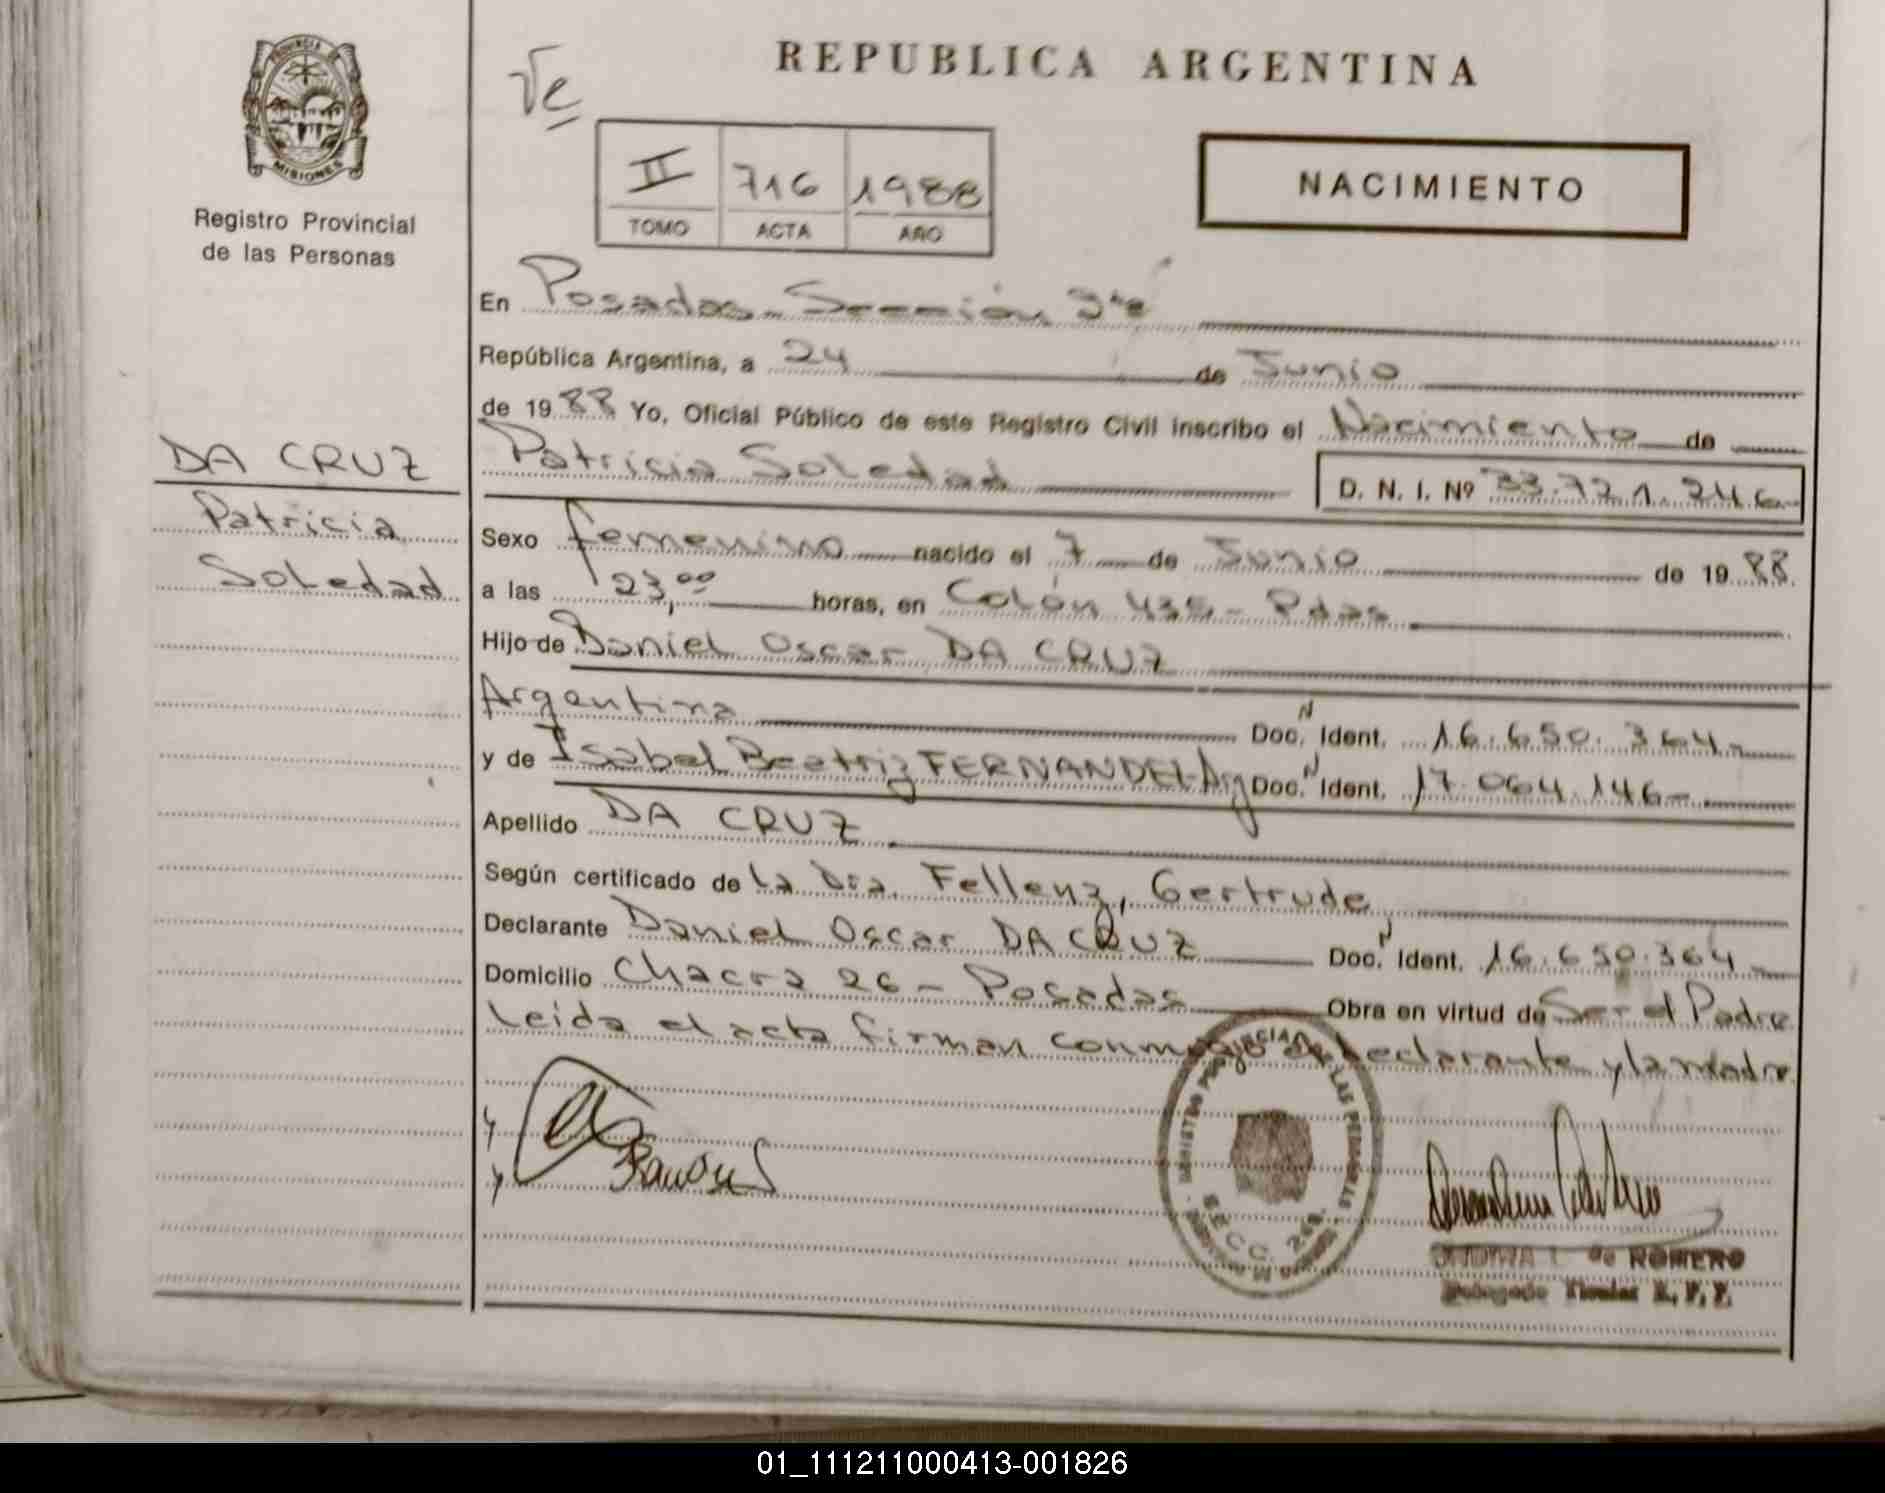 REPUBLICA ARGENTINA
PROVINCIA DE
MISIONES
Registro Provincial
de las Personas
II 716 1988
TOMO ACTA AÑO
NACIMIENTO
En Posadas - Sección 2da
República Argentina, a 24 de Junio
de 1988 Yo, Oficial Público de este Registro Civil inscribo el Nacimiento de
DA CRUZ
Patricia
Soledad
Patricia Soledad D. N. I. Nº 33.721.246
Sexo femenino nacido el 7 de Junio de 1988
a las 23,00 horas, en Colón 435 - Pdas
Hijo de Daniel Oscar DA CRUZ
Argentina Doc. N Ident. 16.650.364-
y de Isabel Beatriz FERNANDEZ-Arg Doc. N Ident. 17.064.146-
Apellido DA CRUZ
Según certificado de La Dra. Fellenz, Gertrude
Declarante Daniel Oscar DA CRUZ Doc. N Ident. 16.650.364-
Domicilio Chacra 26 - Posadas Obra en virtud de Ser el Padre
Leida el acta firman conmigo el declarante y la madre
DE LAS PERSONAS
SECC. 2da.
L. de ROMERO
Delegada Titular R. P. P.
01_111211000413-001826